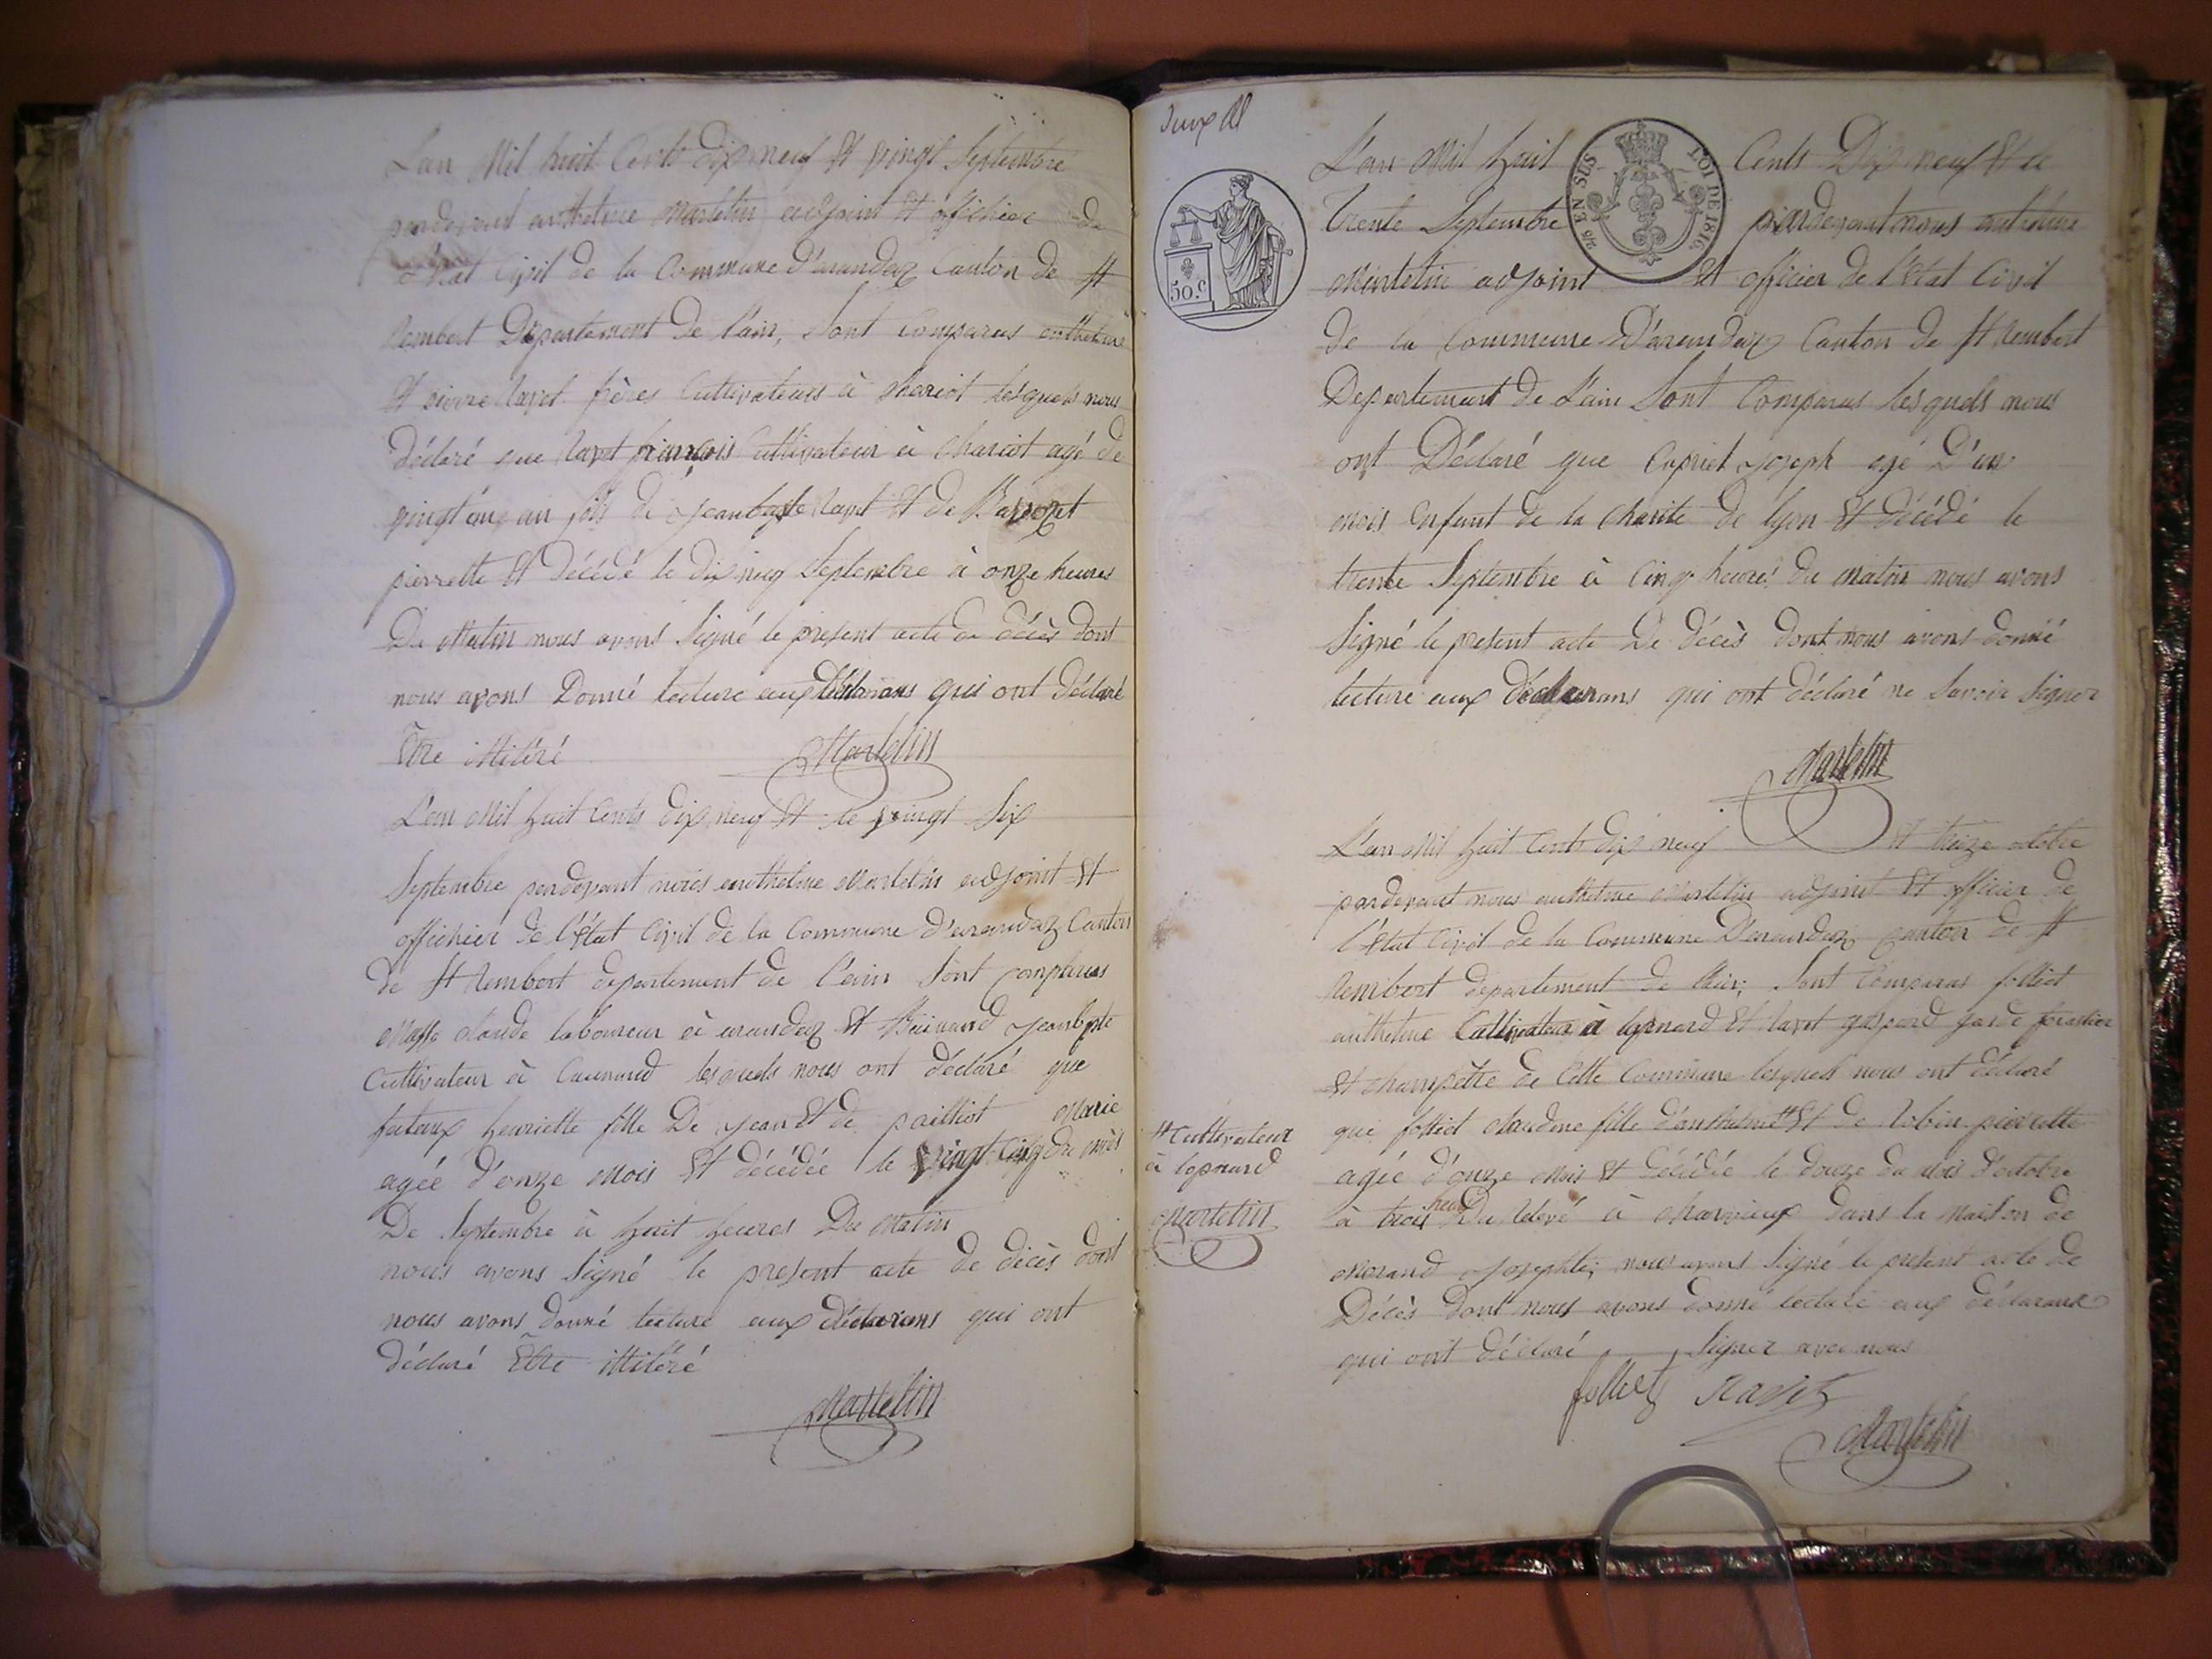 L'an Mil huit Cents dix neuf et vingt Septembre
pardevant anthelme Martelin adjoint et offichier de
l'état Civil de la Commune d'arandaz Canton de St
Rembert Departement de l'ain, Sont Comparus anthelme
et pierre ravet frères Cultivateurs à Chariot lesquels nous
déclaré que ravet françois Cultivateur à Chariot agé de
vingt cinq an fils de Jeanbaste ravet et de
pierrette et décédé le dix neuf Septembre à onze heures
Du Matin nous avons Signé le présent acte de décès dont
nous avons Donné lecture aux Déclarans qui ont déclaré
être illiteré
Martelin
L'an Mil huit Cents dix neuf et le vingt Six
Septembre pardevant nous anthelme Martelin adjoint et
offichier de l'État Civil de la Commune d'arandaz Canton
de St Rembert departement de l'ain Sont comparus
Masse Claude laboureur à arandaz et Jeanbpte
Cultivateur à lesquels nous ont déclaré que
henriette fille De Jean et de Marie
agée d'onze Mois et décédée le vingt Cinq du mois
De Septembre à huit heures Du Matin
nous avons Signé le present acte de décès dont
nous avons donné lecture aux déclarans qui ont
déclaré Être illiteré
Martelin
50.C
EN SUS
LOI DE 1816.
L'an Mil huit Cents Dix neuf et le
trente Septembre pardevant nous anthelme
Martelin adjoint et officier de l'état Civil
de la Commune D'arandaz Canton de St Rembert
Departement de L'ain Sont Comparus lesquels nous
ont Déclaré que Capriet Joseph agé D'un
mois enfant de la Charité de lyon et décédé le
trente Septembre à Cinq heures du matin nous avons
Signé le présent acte De décès dont nous avons donné
lecture aux déclarans qui ont déclaré ne Savoir Signer
Martelin
L'an Mil huit Cents dix neuf et treize octobre
pardevant nous anthelme Martelin adjoint et officier de
l'état Civil de la Commune D'arandaz canton de St
Rembert departement de l'ain; Sont Comparus folliet
anthelme Cultivateur à et ravet gaspard garde forestier
et champêtre de Cette Commune lesquels nous ont déclaré
que folliet Claudine fille d'anthelme # et de Robin pierrette
agée d'onze Mois et décédée le douze du Mois d'octobre
à trois heures Du relevé à dans la Maison de
Morand Josephte; nous avons Signé le présent acte de
Décès dont nous avons donné lecture aux déclarans
qui ont déclaré Signer avec nous
# Cultivateur
à
Martelin
folliet Ravet
Martelin